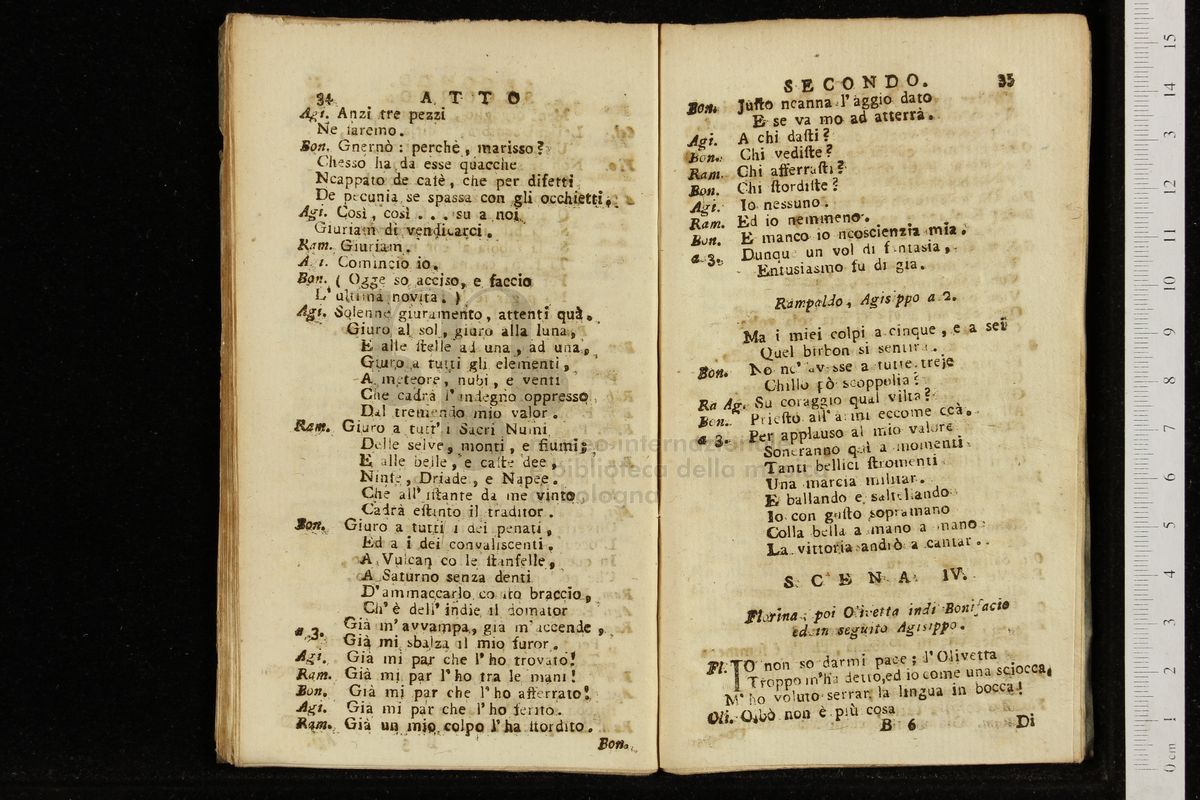 34 ATTO
Agi. Anzi tre pezzi
Ne faremo.
Bon. Gnernò : perchè, marisso?
Chesso ha da esse quacche
Ncappato de cafè, che per difetti
De pecunia se spassa con gli occhietti.
Agi. Così, così . . . su a noi
Giuriam di vendicarci.
Ram. Giuriam.
A i. Comincio io.
Bon. ( Ogge so acciso, e faccio
L'ultima novita. )
Agi. Solenne giuramento, attenti quà.
Giuro al sol, giuro alla luna,
E alle stelle ad una, ad una,
Giuro a tutti gli elementi,
A meteore, nubi, e venti
Che cadrà l'indegno oppresso
Dal tremendo mio valor.
Ram. Giuro a tutt' i Sacri Numi
Delle selve, monti, e fiumi;
E alle belle, e caste dee,
Ninfe, Driade, e Napee.
Che all' istante da me vinto
Cadrà estinto il traditor.
Bon. Giuro a tutti i dei penati,
Ed a i dei convaliscenti,
A Vulcan co le stanfelle,
A Saturno senza denti
D'ammaccarlo co sto braccio,
Ch' è dell' indie il domator
a 3. Già m' avvampa, già m' accende,
Già mi sbalza il mio furor.
Agi. Già mi par che l' ho trovato!
Ram. Già mi par l' ho tra le mani!
Bon. Già mi par che l' ho afferrato!
Agi. Già mi par che l' ho ferito.
Ram. Già un mio colpo l' ha stordito.
Bon.
SECONDO. 35
Bon. Justo ncanna l' aggio dato
E se va mo ad atterrà.
Agi. A chi dasti?
Bon. Chi vediste?
Ram. Chi afferrasti?
Bon. Chi stordiste?
Agi. Io nessuno.
Ram. Ed io nemmeno.
Bon. E manco io ncoscienzia mia.
a 3. Dunque un vol di fantasia,
Entusiasmo fu di gia.
Rampaldo, Agisippo a 2.
Ma i miei colpi a cinque, e a sei
Quel birbon si sentirà.
Bon. No nc' avesse a tutte treje
Chillo fò scoppolià?
Ra Ag. Su coraggio qual viltà?
Bon. Priesto all' armi eccome ccà.
a 3. Per applauso al mio valore
Soneranno quì a momenti
Tanti bellici stromenti
Una marcia militar.
E ballando e salteliando
Io con gusto sopramano
Colla bella a mano a mano
La vittoria andrò a cantar.
SCENA IV.
Florina, poi Olivetta indi Bonifacio
ed in seguito Agisippo.
Fl. IO non so darmi pace; l'Olivetta
Troppo m'ha detto, ed io come una sciocca,
M' ho voluto serrar la lingua in bocca!
Oli. Oibò non è più cosa
B 6 Di
museo internazionale
e biblioteca della musica
di bologna
0 cm 1 2 3 4 5 6 7 8 9 10 11 12 13 14 15